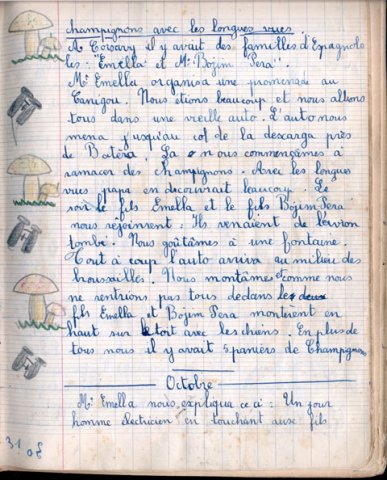 champignons avec les longues vues
A Corsavy il y avait des familles d'Espagnols
les : "Emella" et Mr Bojim Pera".
Mr Emella organisa une promenade au
Canigou. Nous etions beaucoup et nous allions
tous dans une vieille auto. L'auto nous
mena jusqu'au col de la descarga près
de Batèra. La nous commençâmes à
ramacer des champignons. Avec les longues
vues papa en découvrait beaucoup. Le
soir le fils Emella et le fils Bojim Pera
nous rejoinrent. Ils venaient de l'avion
tombé. Nous goûtâmes à une fontaine.
Tout à coup l'auto arriva au milieu des
broussailles. Nous montâmes et comme nous
ne rentrions pas tous dedans les deux
fils Emella et Bojim Pera montèrent en
haut sur le tort avec les chiens. En plus de
tous nous il y avait 5 paniers de Champignons
Octobre
Mr Emella nous expliqua ceci : Un jour
homme electricien en touchant aux fils
31 08